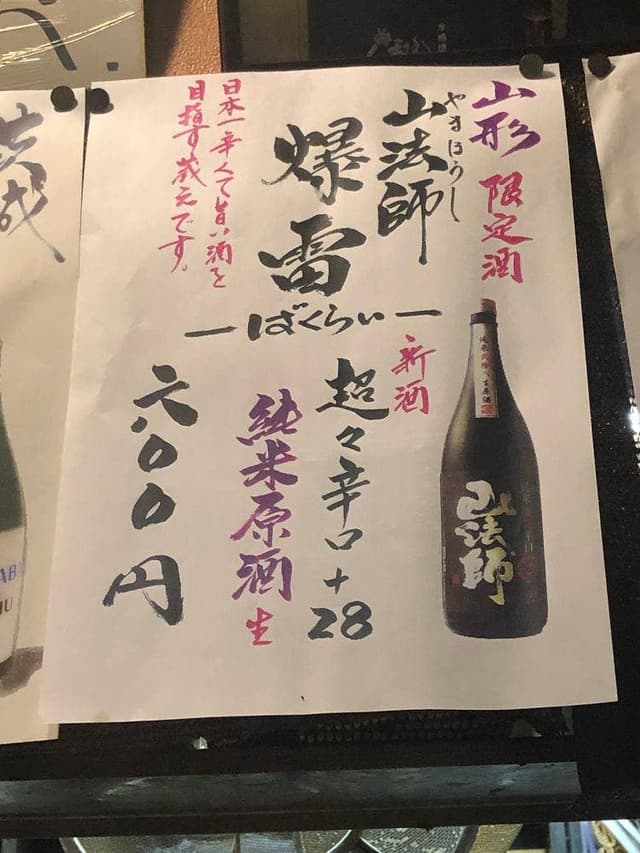 山形 限定酒
やまほうし
山法師
爆雷
ーばくらいー
日本一辛くて旨い酒を
目指す蔵元です。
新酒
超々辛口+28
純米原酒 生
六〇〇円
山法師